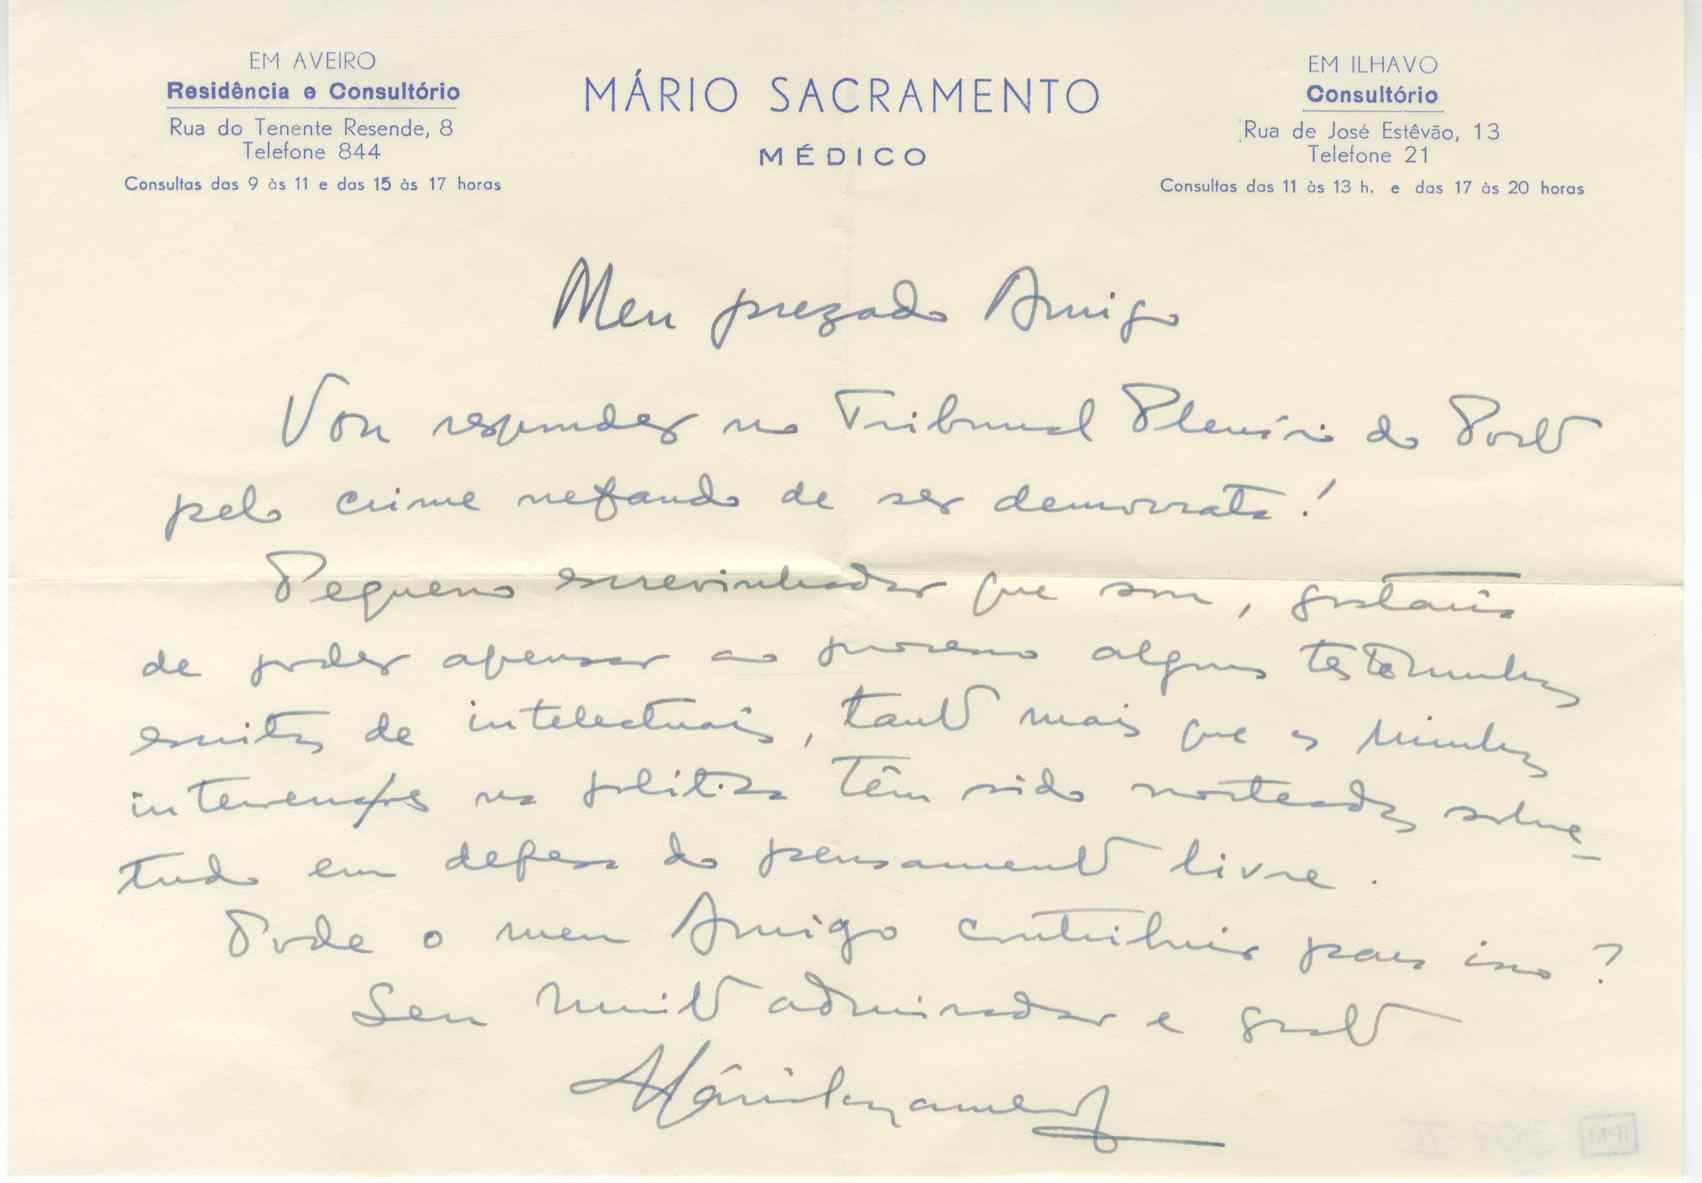 EM AVEIRO
Residência e Consultório
Rua do Tenente Resende, 8
Telefone 844
Consultas das 9 às 11 e das 15 às 17 horas
MÁRIO SACRAMENTO
MÉDICO
EM ILHAVO
Consultório
Rua de José Estêvão, 13
Telefone 21
Consultas das 11 às 13 h. e das 17 às 20 horas
Meu prezado Amigo
Vou responder no Tribunal Plenário do Porto
pelo crime nefando de ser democrata!
Pequeno escrevinhador que sou, gostaria
de poder apensar ao processo alguns testemunhos
escritos de intelectuais, tanto mais que as minhas
intervenções na política têm sido norteadas sobre-
tudo em defesa do pensamento livre.
Pode o meu Amigo contribuir para isso?
Seu muito admirador e grato
Mário Sacramento